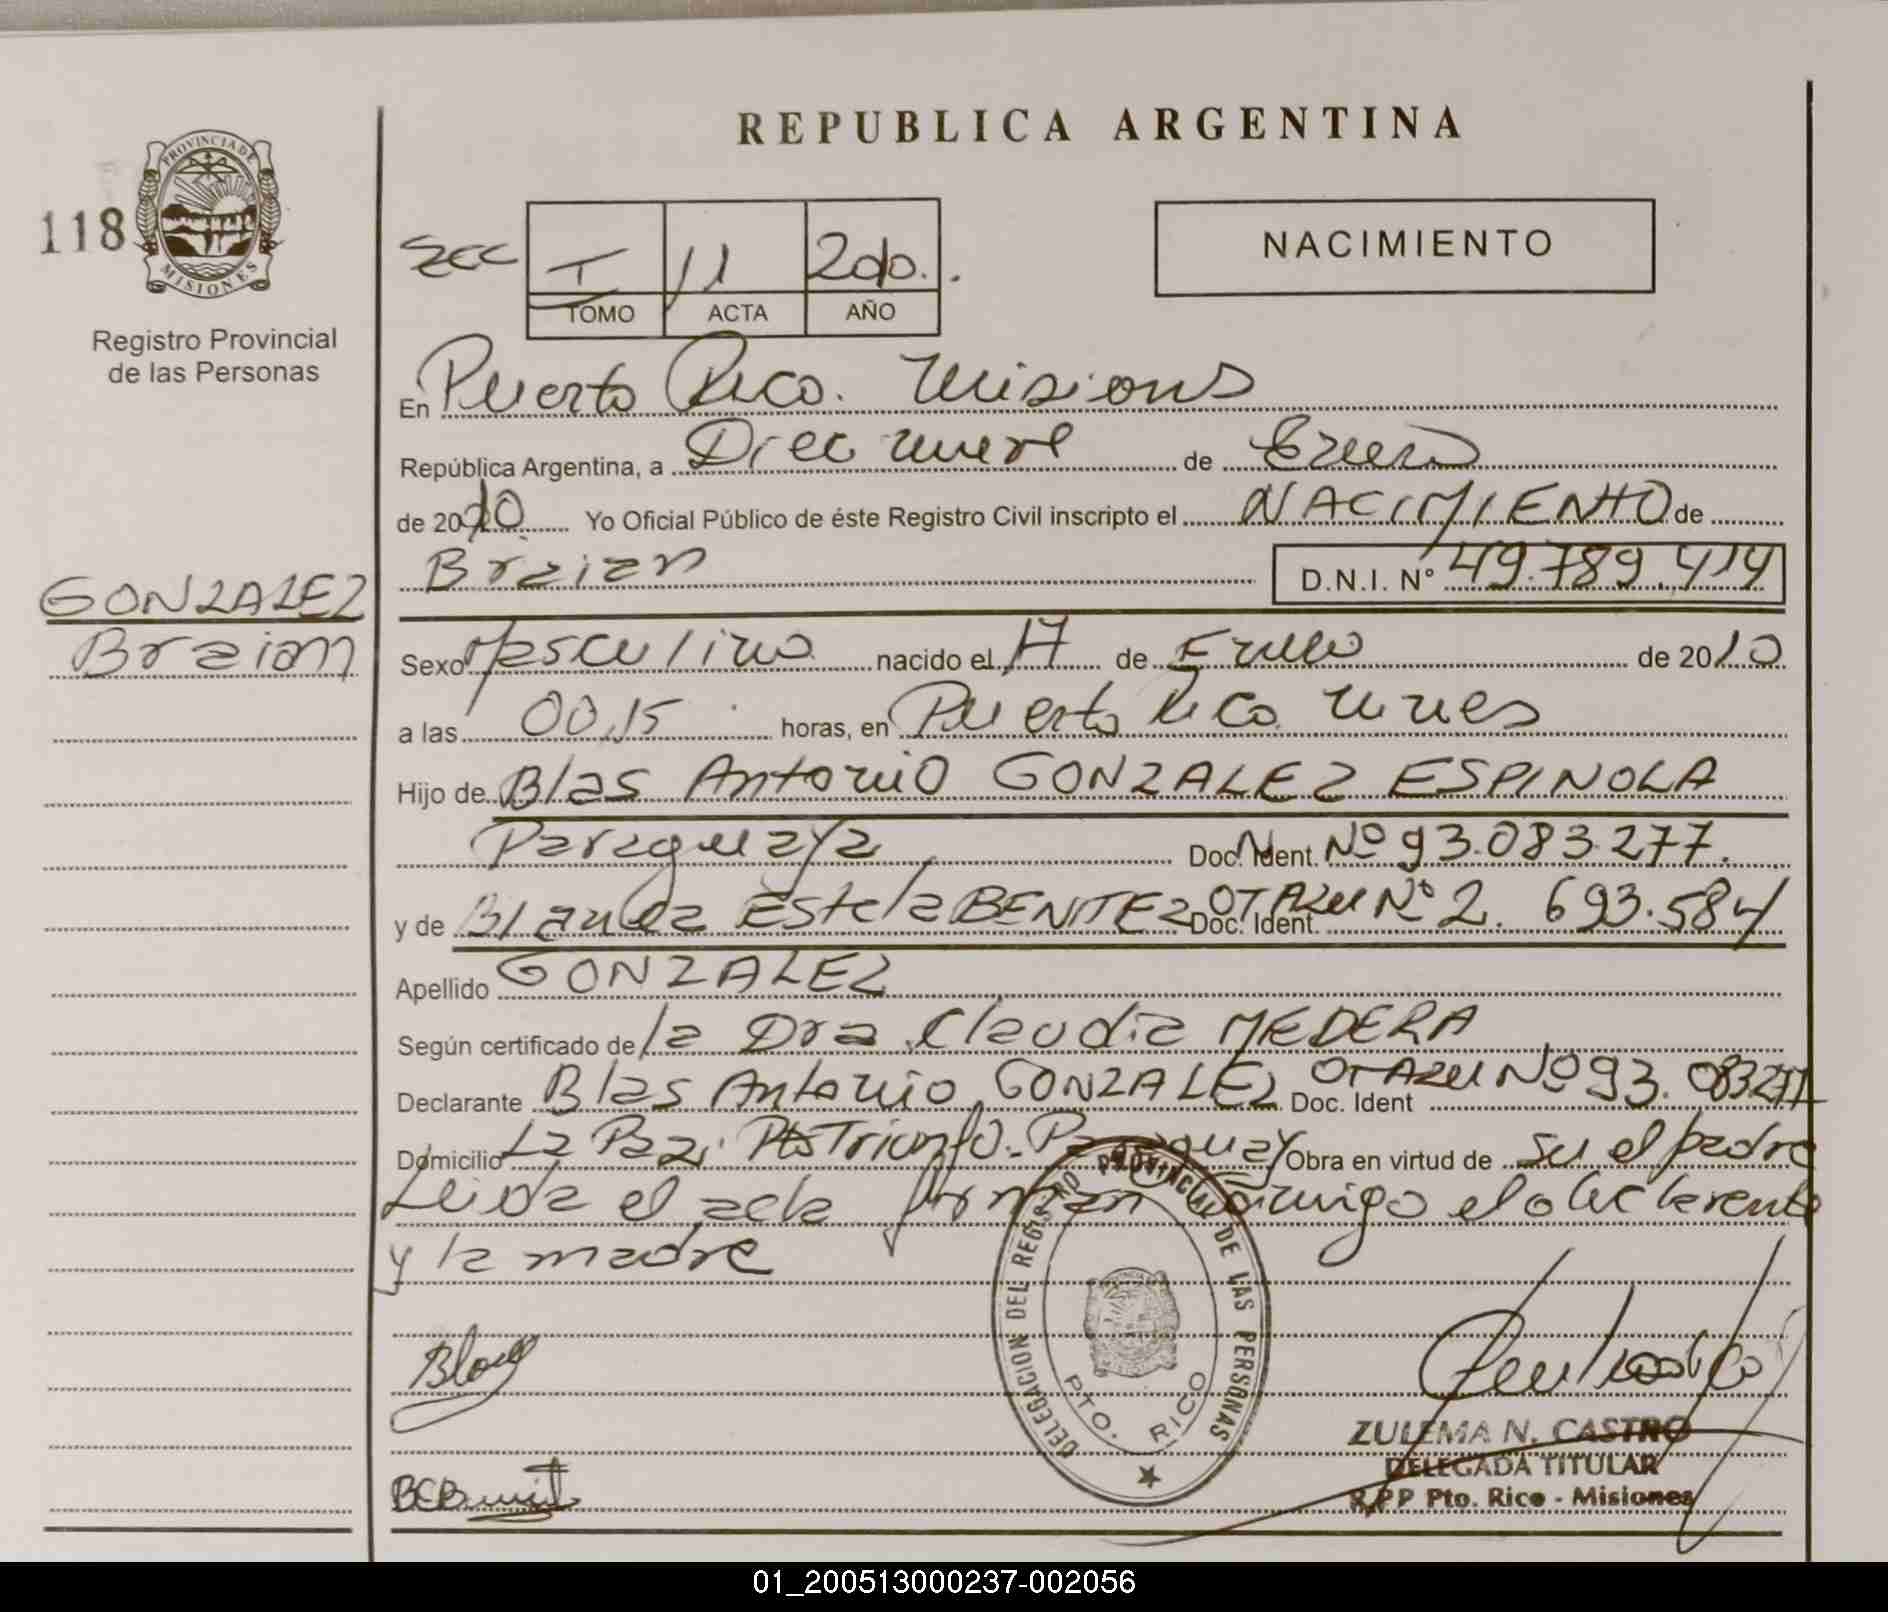 REPUBLICA ARGENTINA
118
PROVINCIA DE MISIONES
Registro Provincial
de las Personas
I 11 2do.
TOMO ACTA AÑO
NACIMIENTO
En Puerto Rico. Misiones
República Argentina, a Diecinueve de Enero
de 2010 Yo Oficial Público de éste Registro Civil inscripto el NACIMIENTO de
Braian D.N.I. N° 49.789.414
GONZALEZ
Braian
Sexo Masculino nacido el 17 de Enero de 2010
a las 00,15 horas, en Puerto Rico. Mnes
Hijo de Blas Antonio GONZALEZ ESPINOLA
Paraguaya Doc. Ident. Nº 93.083.277.
y de Blanca Estela BENITEZ OTAZU Doc. Ident. Nº 2.693.584
Apellido GONZALEZ
Según certificado de la Dra Claudia MEDERA
Declarante Blas Antonio GONZALEZ OTAZU Doc. Ident Nº 93.083277
Domicilio La Paz. Pto Triunfo. Paraguay Obra en virtud de su el padre
Leida el acta firman conmigo el declarante
y la madre
DELEGACION DEL REGISTRO PROVINCIAL DE LAS PERSONAS
PTO. RICO
Blas
ZULEMA N. CASTRO
DELEGADA TITULAR
R.P.P Pto. Rico - Misiones
01_200513000237-002056